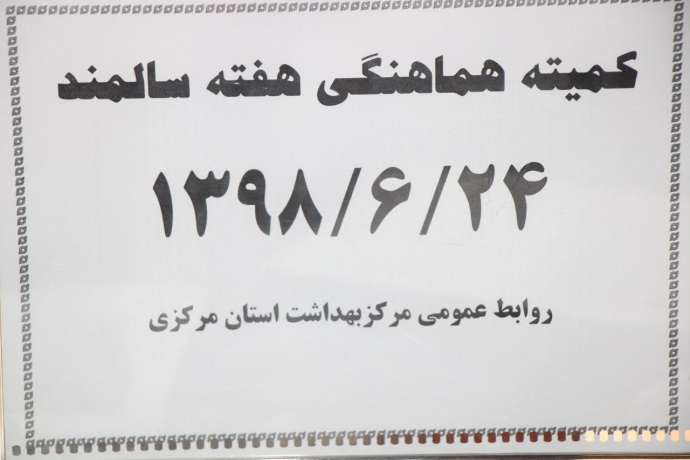 کمیته هماهنگی هفته سالمند
۱۳۹۸/۶/۲۴
روابط عمومی مرکزبهداشت استان مرکزی